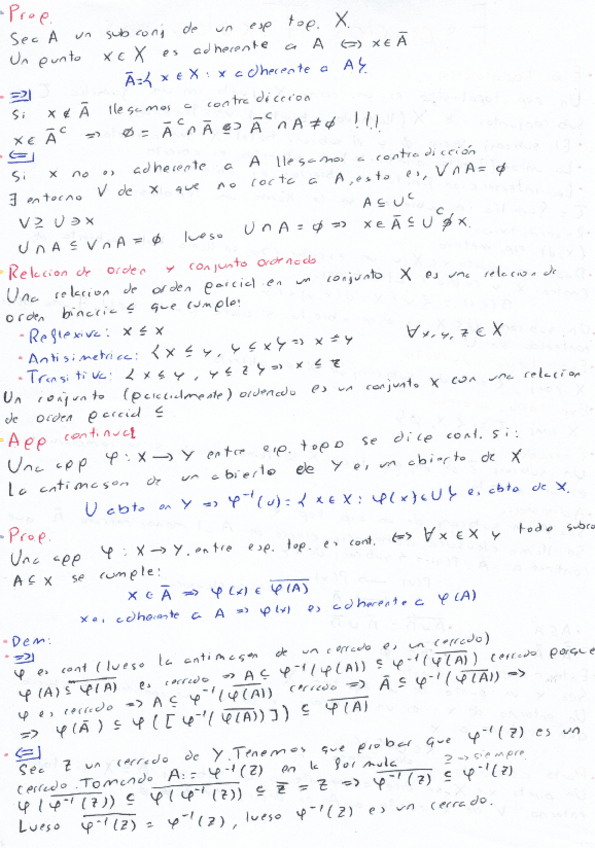 · Prop.
Sea A un subconj de un esp top. X.
Un punto x ∈ X es adherente a A ⟺ x ∈ Ā
Ā = { x ∈ X : x adherente a A }.
· ⟹|
Si x ∉ Ā llegamos a contradiccion
x ∈ Ā^c ⟹ ∅ = Ā^c ∩ Ā ⊇ Ā^c ∩ A ≠ ∅ !!!
· ⟸|
Si x no es adherente a A llegamos a contradicción
∃ entorno V de x que no corta a A, esto es, V ∩ A = ∅
V ⊇ U ∋ x
A ⊆ U^c
U ∩ A ⊆ V ∩ A = ∅ luego U ∩ A = ∅ ⟹ x ∈ Ā ⊆ U^c ∌ x.
· Relacion de orden y conjunto ordenado
Una relacion de orden parcial en un conjunto X es una relacion de
orden binaria ≤ que cumple:
· Reflexiva: x ≤ x ∀x, y, z ∈ X
· Antisimetrica: { x ≤ y, y ≤ x } ⟹ x = y
· Transitiva: { x ≤ y, y ≤ z } ⟹ x ≤ z
Un conjunto (parcialmente) ordenado es un conjunto X con una relacion
de orden parcial ≤
· App continua
Una app φ : X → Y entre esp. topo se dice cont. si:
La antimagen de un abierto de Y es un abierto de X
U abto en Y ⟹ φ⁻¹(U) = { x ∈ X : φ(x) ∈ U } es abto de X.
· Prop.
Una app φ : X → Y entre esp. top. es cont. ⟺ ∀x ∈ X y todo subco
A ⊆ X se cumple:
x ∈ Ā ⟹ φ(x) ∈ \overline{φ(A)}
x es adherente a A ⟹ φ(x) es adherente a φ(A)
· Dem:
· ⟹|
φ es cont (luego la antimagen de un cerrado es un cerrado)
φ(A) ⊆ \overline{φ(A)} es cerrado ⟹ A ⊆ φ⁻¹(φ(A)) ⊆ φ⁻¹(\overline{φ(A)}) cerrado porque
φ es cerrado ⟹ A ⊆ φ⁻¹(\overline{φ(A)}) cerrado ⟹ Ā ⊆ φ⁻¹(\overline{φ(A)}) ⟹
⟹ φ(Ā) ⊆ φ([φ⁻¹(\overline{φ(A)})]) ⊆ \overline{φ(A)}
· ⟸|
Sea Z un cerrado de Y. Tenemos que probar que φ⁻¹(Z) es un
cerrado. Tomando A := φ⁻¹(Z) en la formula
⊇ → siempre
φ(\overline{φ⁻¹(Z)}) ⊆ \overline{φ(φ⁻¹(Z))} ⊆ \overline{Z} = Z ⟹ \overline{φ⁻¹(Z)} ⊆ φ⁻¹(Z)
Luego \overline{φ⁻¹(Z)} = φ⁻¹(Z), luego φ⁻¹(Z) es un cerrado.